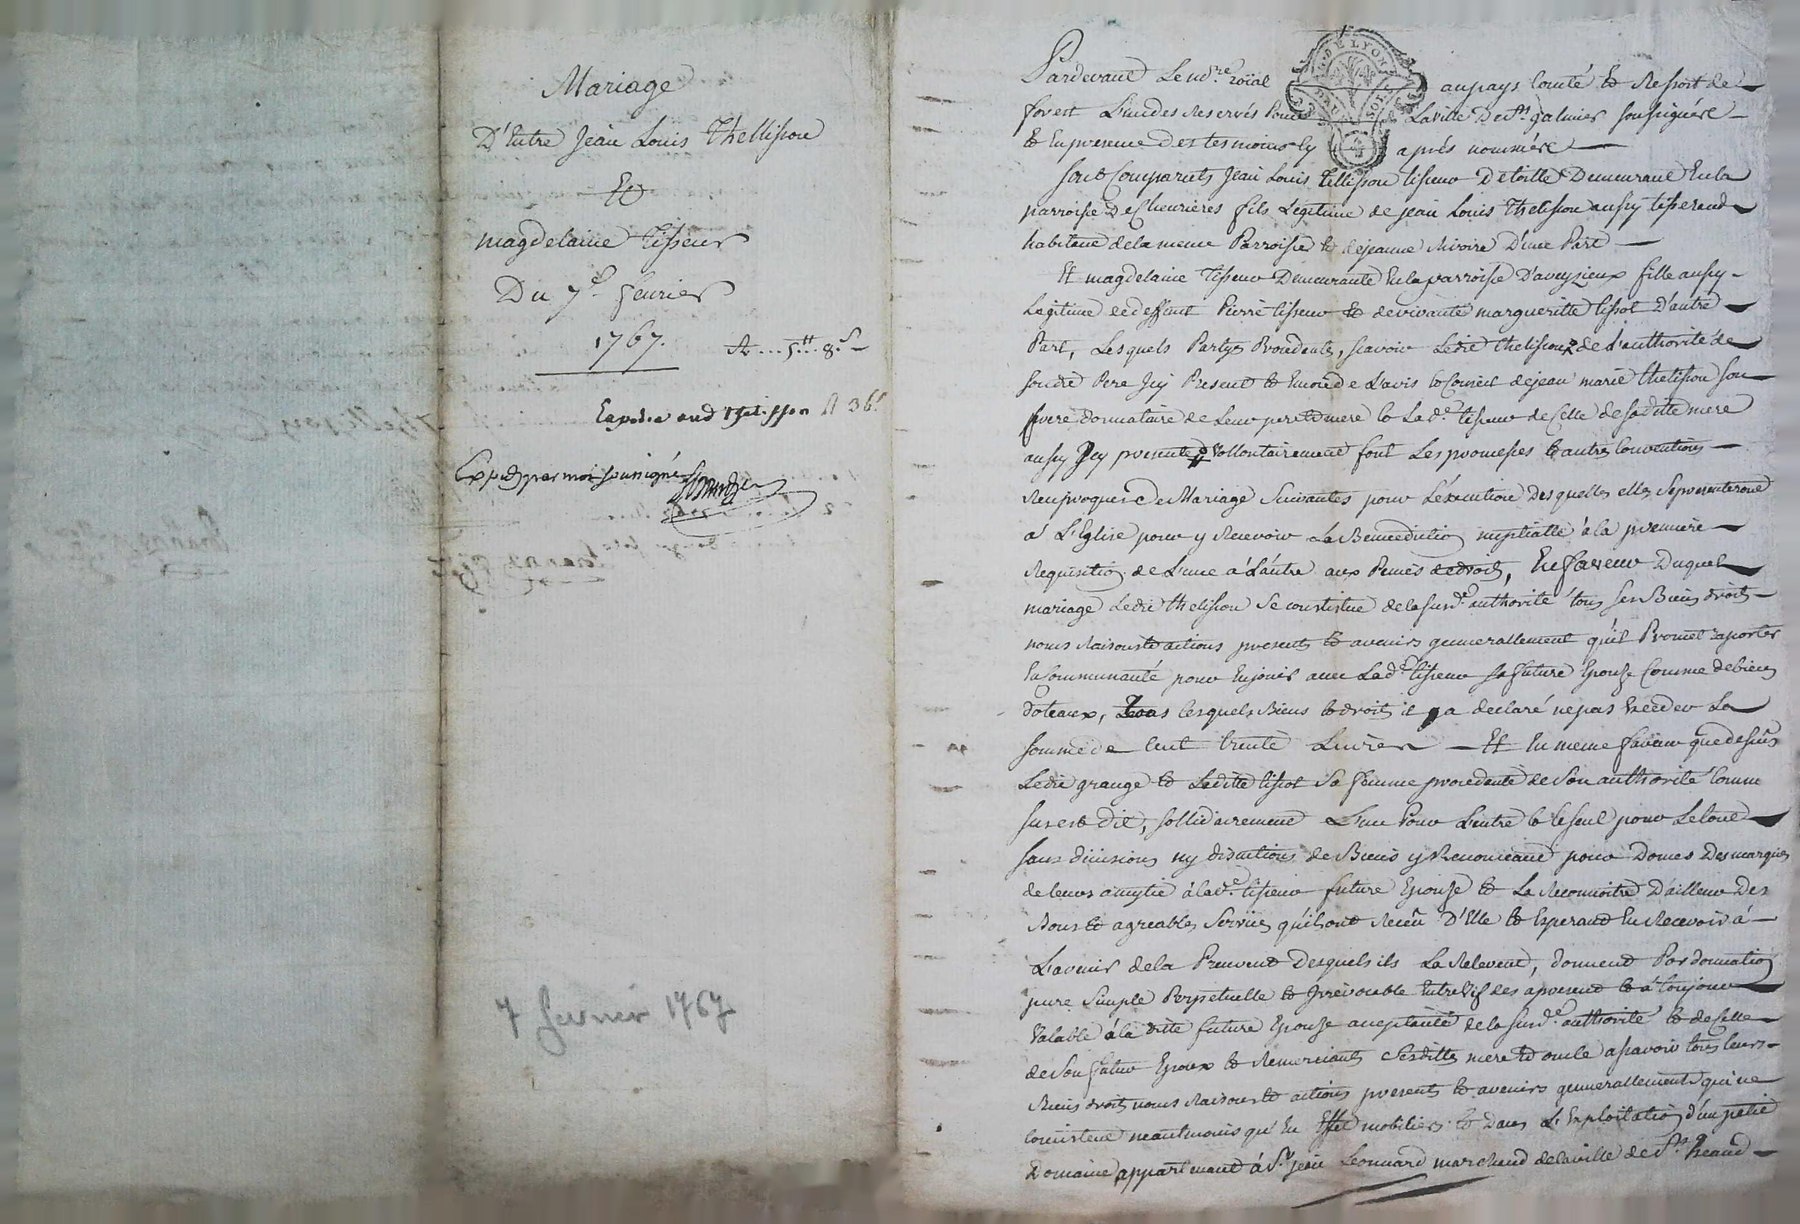 Mariage
D'Entre Jean Louis Thellisson
Et
magdelaine Tisseur
Du 7e. fevrier
1767.
Expedie aud Thelisson
Expedié par moi soussigné
7 fevrier 1767
Pardevant Le no.re roial au pays Comté et Ressort de
forest L'un des Reservés Pour La ville De St. galmier soussignére
Et En presence des tesmoins Cy après nommére
sont Comparuts Jean Louis Tellisson tisseur De toille Demeurant En la
parroisse De Chevrières fils Legitime de jean Louis Thelisson aussy tisserand
habitant de la meme Parroisse et de jeanne Rivoire D'une Part
Et magdelaine Tisseur Demeurante En la parroisse D'aveysieux fille aussy
Legitime de deffunt Pierre tisseur et de vivante margueritte tissot D'autre
Part, Lesquels Partyes Procedantes, scavoir Ledit thelisson de L'authorité de
sondit Pere Icy Present et Encore de L'avis et Conseil de jean marie thelisson son
frere donnataire de Leur pere et mere et La de. tisseur de Celle de sa ditte mere
aussy Icy presente vollontairement font Les promesses et autres Conventions
Reciproques de Mariage Suivantes pour L'éxecution Desquelles elles se presenteront
à L'Eglise pour y Recevoir La Benediction nuptialle à la premiere
Requisition de L'une à L'autre aux Peines de droit, En faveur Duquel
mariage Ledit thelisson se constitue de la susde. authorité tous ses Biens droits
noms Raisons et actions presents et avenirs generallement qu'il Promet raporter
En Communauté pour En jouir avec Lade. tisseur sa future Epouse Comme de biens
doteaux, Tous lesquels Biens et droits il a declaré ne pas Exceder La
somme de Cent trente Livres — Et En meme faveur que dessus
Ledit grange et Laditte tissot Sa femme procedante de Son authorité Comme
sus est dit, sollidairement L'un Pour L'autre et le seul pour Le tout
sans division ny discution de Biens y Renonceant pour Donner Des marques
de leurs amytié à lade. tisseur future Epouse et La Reconnoitre D'ailleur Des
Bons et agreables Services qu'ils ont Reçeu D'Elle et Esperant En Recevoir à
L'avenir de la Preuve Desquels ils La Relevent, donnent Par donnation
pure Simple Perpetuelle et Irrevocable Entre Vif des apresent et à toujours
Valable à la ditte future Epouse aceptante de la susde. authorité et de Celle
de Son futur Epoux et Remerciants Sesdittes mere et oncle a scavoir tous leurs
Biens droits noms Raisons et actions presents et avenirs generallement qui ne
Consistent neantmoins qu'En Effet mobiliers et Dans L'Exploitation d'un petit
Domaine appartenant à Sr. jean Leonnard marchand de la ville de St. heand